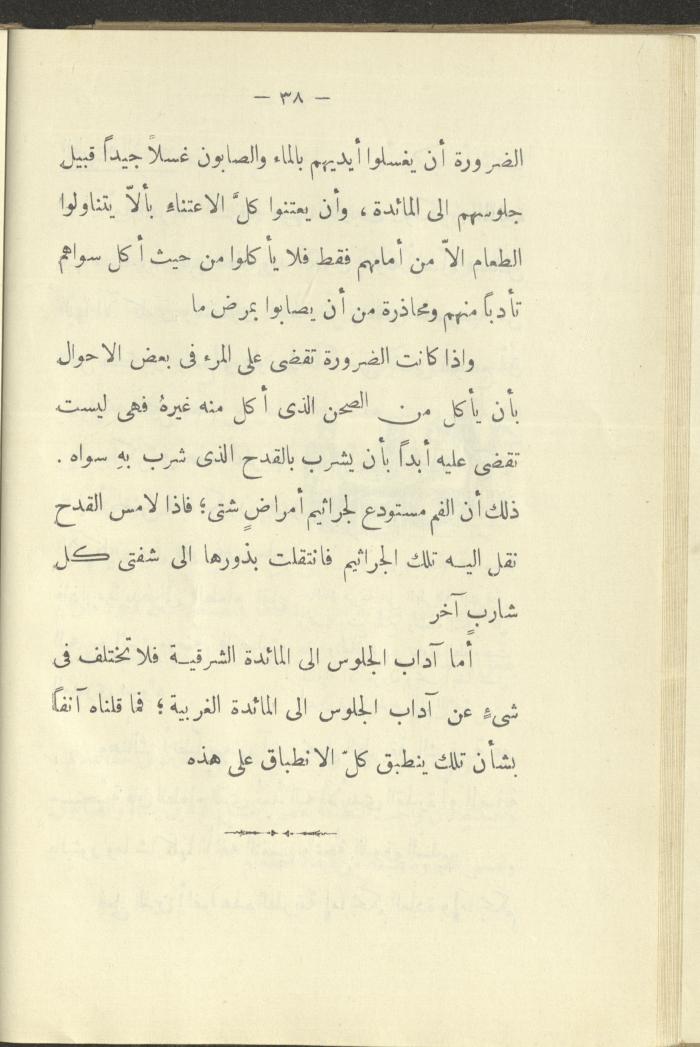 — ٣٨ —
الضرورة أن يغسلوا أيديهم بالماء والصابون غسلاً جيداً قبيل
جلوسهم الى المائدة ، وأن يعتنوا كلَّ الاعتناء بألاّ يتناولوا
الطعام الاّ من أمامهم فقط فلا يأكلوا من حيث أكل سواهم
تأدباً منهم ومحاذرة من أن يصابوا بمرض ما
واذا كانت الضرورة تقضى على المرء فى بعض الاحوال
بأن يأكل من الصحن الذى أكل منه غيرهُ فهى ليست
تقضى عليه أبداً بأن يشرب بالقدح الذى شرب بهِ سواه .
ذلك أن الفم مستودع لجراثيم أمراضٍ شتى؛ فاذا لامس القدح
نقل اليه تلك الجراثيم فانتقلت بذورها الى شفتى كل
شاربٍ آخر
أما آداب الجلوس الى المائدة الشرقية فلا تختلف فى
شىءٍ عن آداب الجلوس الى المائدة الغربية؛ فما قلناه آنفاً
بشأن تلك ينطبق كلّ الانطباق على هذه